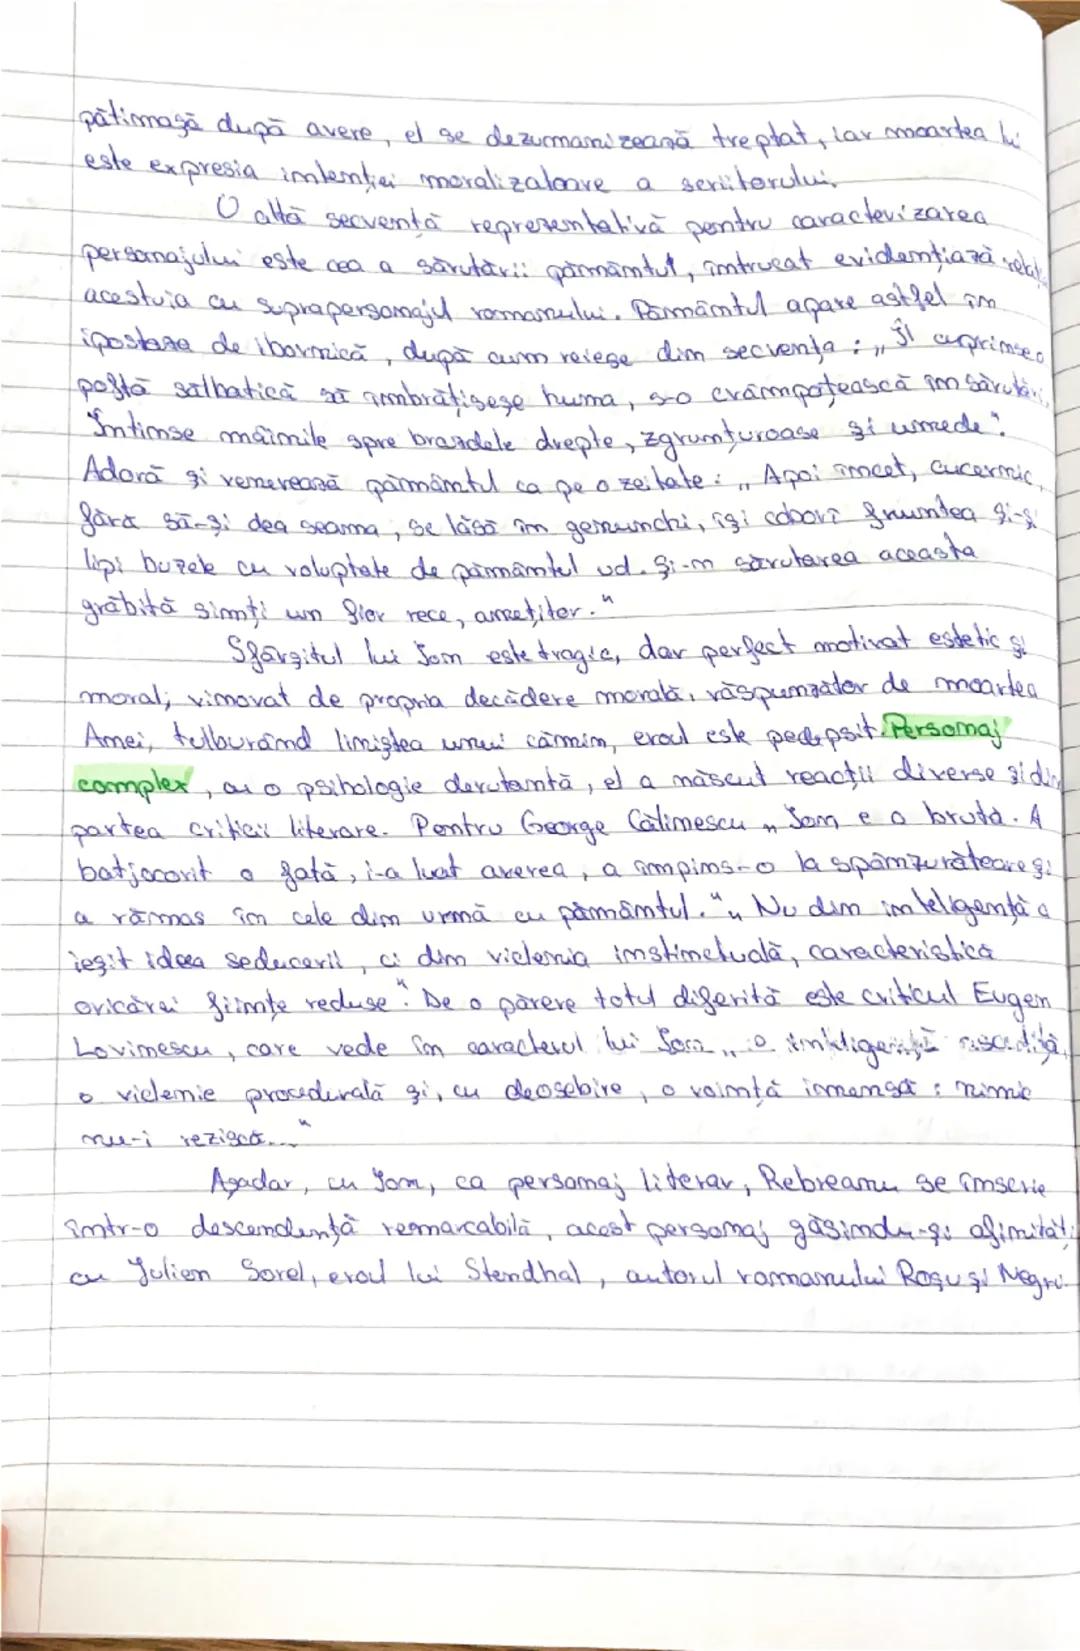 pătimașă după avere, el se dezumanizează treptat, iar moartea lui
este expresia intenției moralizatoare a scriitorului.
O altă secvență reprezentativă pentru caracterizarea
personajului este cea a sărutării pământul, întrucat evidențiază
acestuia cu suprapersonajul romanului. Pământul apare astfel în
ipostaza de ibovnică, după cum reiese din secvența: „Îl cuprinse o
poftă sălbatică să îmbrățișeze huma, s-o crâmpoțească în sărutări.
Întinse mâinile spre brazdele drepte, zgrumțuroase și umede".
Adoră și venerează pământul ca pe o zeitate: „Apoi încet, cucernic,
fără să-și dea seama, se lăsă în genunchi, își coborî fruntea și-și
lipi buzele cu voluptate de pământul ud. Și-n sărutarea aceasta
grăbită simți un fior rece, amețitor."
Sfârșitul lui Ion este tragic, dar perfect motivat estetic și
moral; vinovat de propria decădere morală, răspunzător de moartea
Anei, tulburând liniștea unui cămin, eroul este pedepsit. Personaj
complex, cu o psihologie derutantă, el a născut reacții diverse și din
partea criticii literare. Pentru George Călinescu „Ion e o brută. A
batjocorit o fată, i-a luat averea, a împins-o la spânzurătoare și
a rămas în cele din urmă cu pământul." „Nu din inteligență a
ieșit ideea seducerii, ci din viclenia instinctuală, caracteristică
oricărei ființe reduse". De o părere total diferită este criticul Eugen
Lovinescu, care vede în caracterul lui Ion „o inteligență ascuțită,
o viclenie procedurală și, cu deosebire, o voință imensă: nimic
nu-i rezistă..."
Așadar, cu Ion, ca personaj literar, Rebreanu se înscrie
într-o descendență remarcabilă, acest personaj găsindu-și afinități
cu Julien Sorel, eroul lui Stendhal, autorul romanului Roșu și Negru.